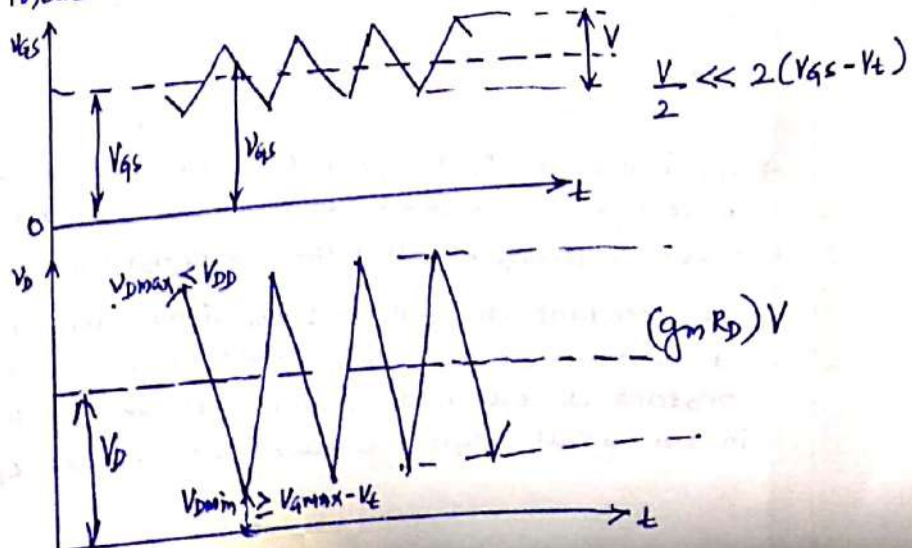 v_GS
V
V/2 << 2(V_GS - V_t)
V_GS
v_GS
t
0
v_D
v_Dmax < V_DD
(g_m R_D) V
V_D
v_Dmin ≥ V_Gmax - V_t
t